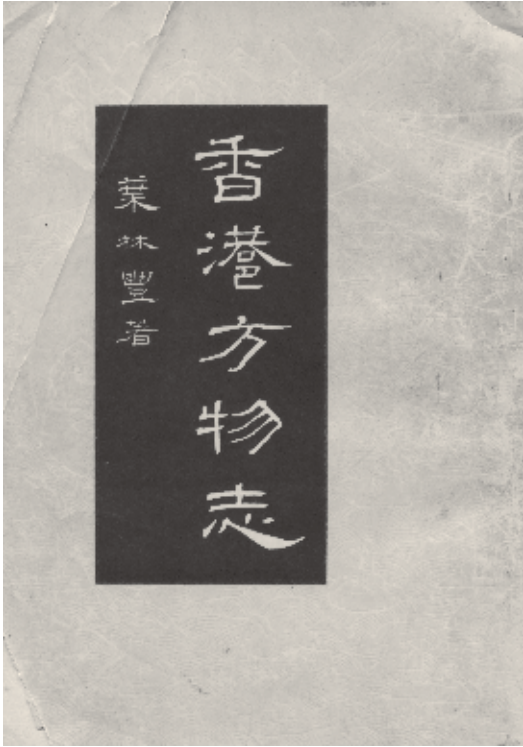 香港方物志
葉林豐著